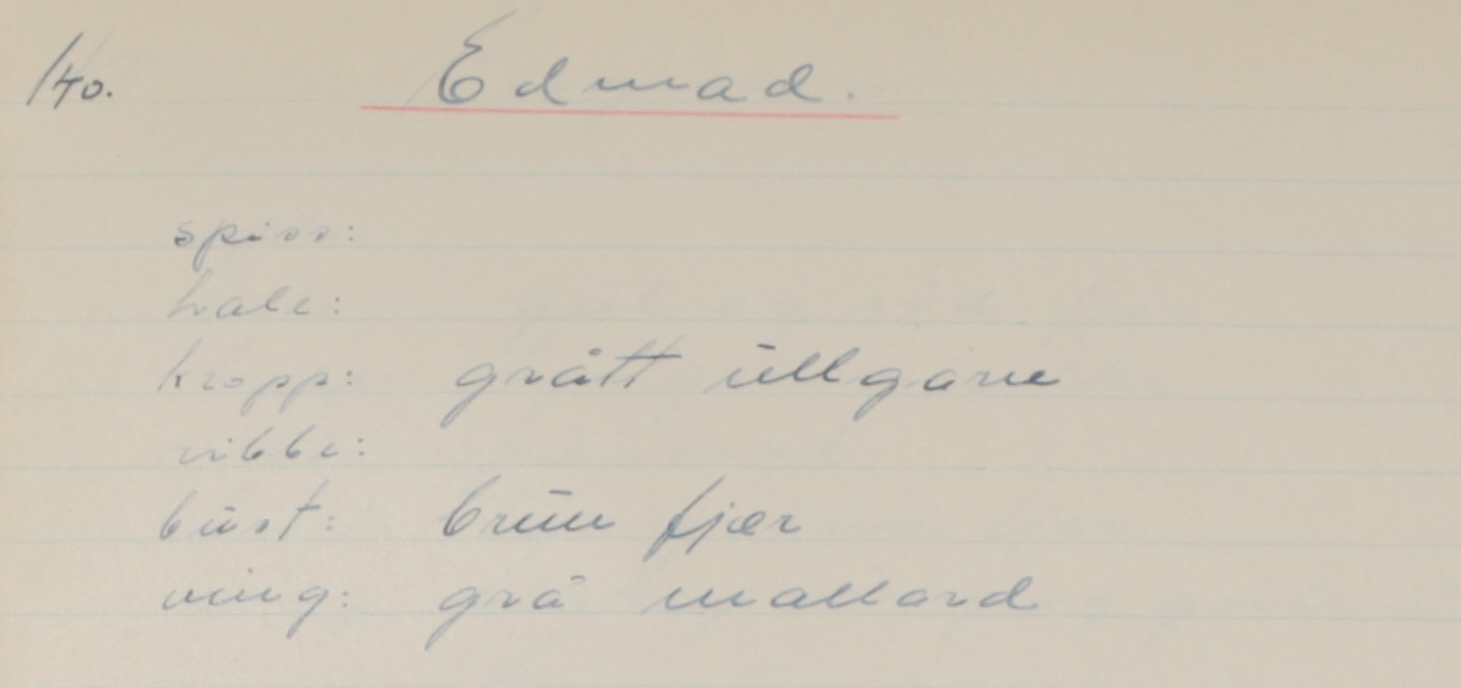 140. Edmad.
spiss:
hale:
kropp: grått ullgarn
ribbe:
bust: brun fjær
ving: grå mallard